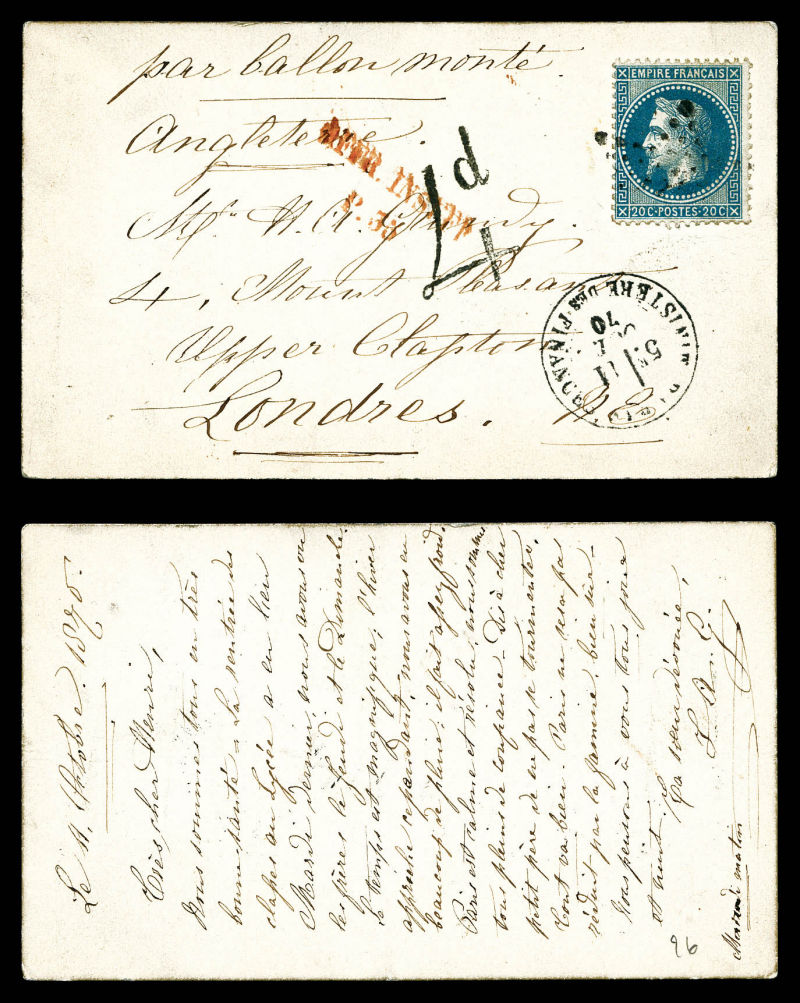 par ballon monté.
EMPIRE FRANÇAIS
20 C - POSTES - 20 C
Angleterre.
AFFR. INSUFF
P. 38
4d
Mr. H. A.
4, Mount Pleasant
Upper Clapton
Londres. N E
MINISTÈRE DES FINANCES
5E
11
OCT
70
Le 11 Octobre. 1870.
Très cher Henri,
Nous sommes tous en très
bonne santé. La rentrée des
classes au Lycée a eu lieu
Mardi dernier, nous avons vu
les pères le Jeudi et le Dimanche.
Le temps est magnifique; l'hiver
approche cependant, nous avons eu
beaucoup de pluie, il fait assez froid.
Paris est calme et résolu, nous sommes
tous pleins de confiance. Dis à cher
petit père de ne pas se tourmenter,
tout va bien. Paris ne sera pas
réduit par la famine, bien sûr.
Nous pensons à vous tous jour
et nuit.
Ta sœur dévouée,
L. A. G.
matin
96